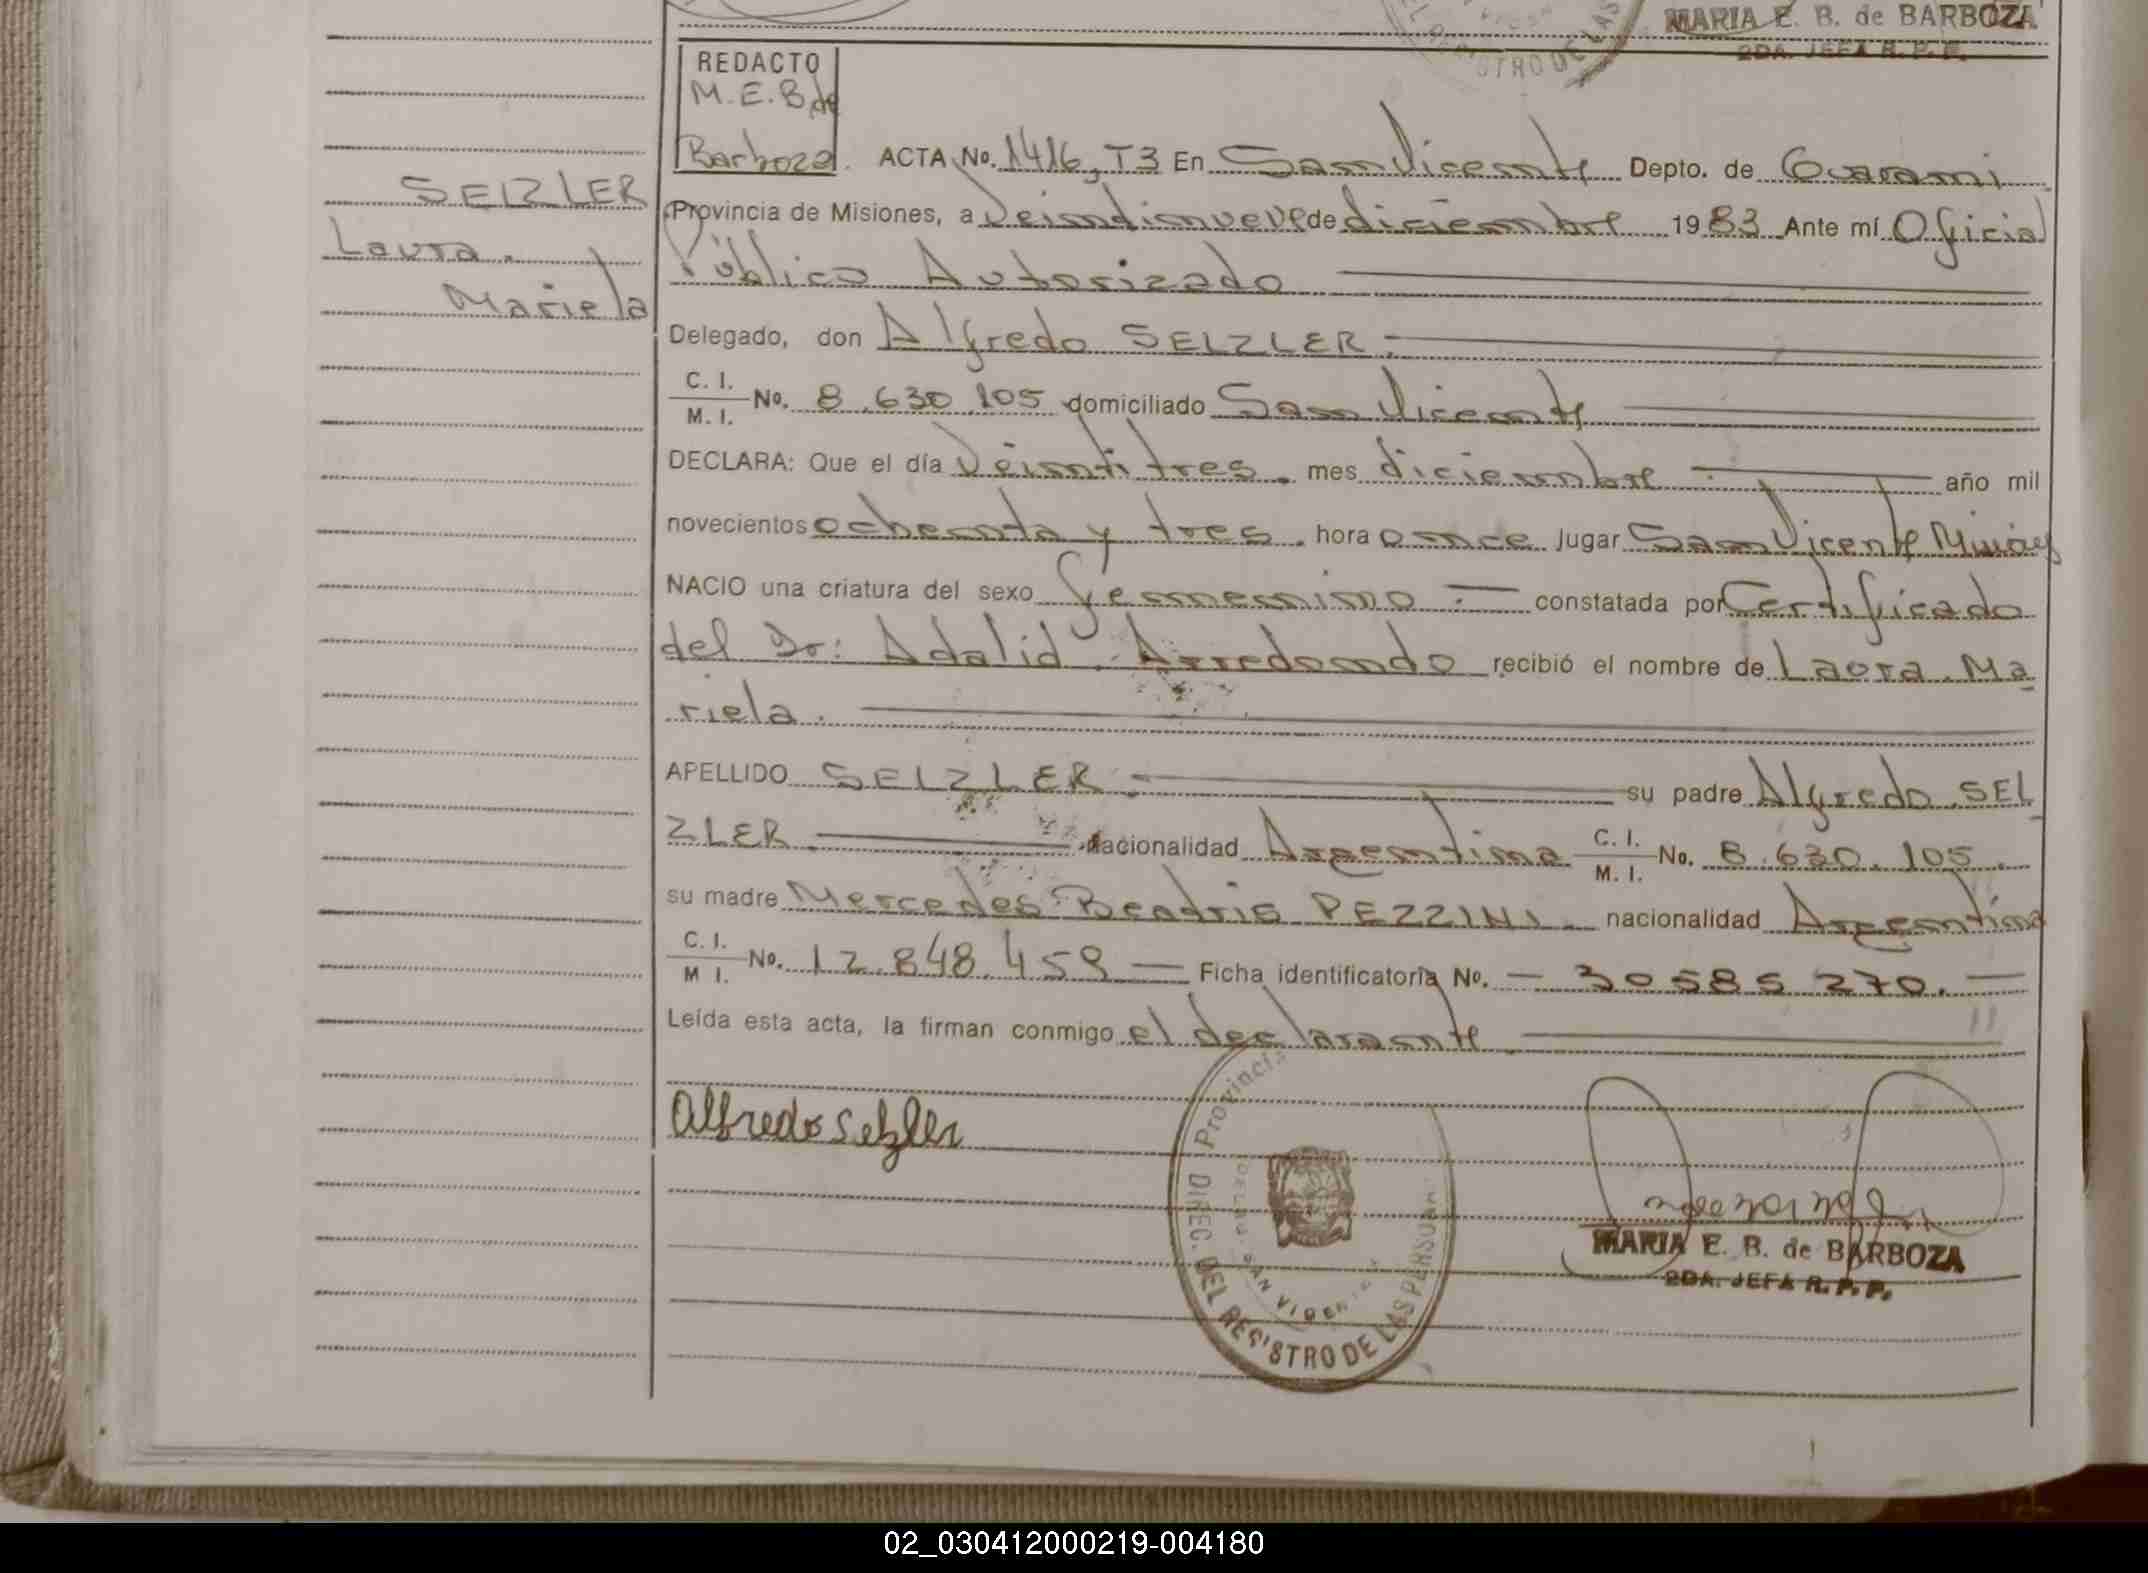 MARIA E. B. de BARBOZA
2DA. JEFA R. P. P.
REDACTO
M.E.B de
Barboza. ACTA No. 1416, T3 En San Vicente Depto. de Guarani
SELZLER
Provincia de Misiones, a Veintinueve de diciembre 1983 Ante mí Oficial
Laura.
Público Autorizado
Mariela
Delegado, don Alfredo SELZLER.
C. I.
M. I. No. 8.630.105 domiciliado San Vicente
DECLARA: Que el día Veintitres. mes diciembre año mil
novecientos ochenta y tres. hora once lugar San Vicente Mnes
NACIO una criatura del sexo femenino constatada por Certificado
del Dr: Adalid Arredondo recibió el nombre de Laura Ma
riela.
APELLIDO SELZLER. su padre Alfredo SEL
ZLER. nacionalidad Argentina C. I.
M. I. No. 8.630.105.
su madre Mercedes Beadris PEZZINI nacionalidad Argentina
C. I.
M I. No. 12.848.459 Ficha identificatoria No. 30585270.
Leída esta acta, la firman conmigo el declarante
Alfredo Selzler
Provincia
DIREC. DEL REGISTRO DE LAS PERSONAS
SAN VICENTE
MARIA E. B. de BARBOZA
2DA. JEFA R. P. P.
02_030412000219-004180